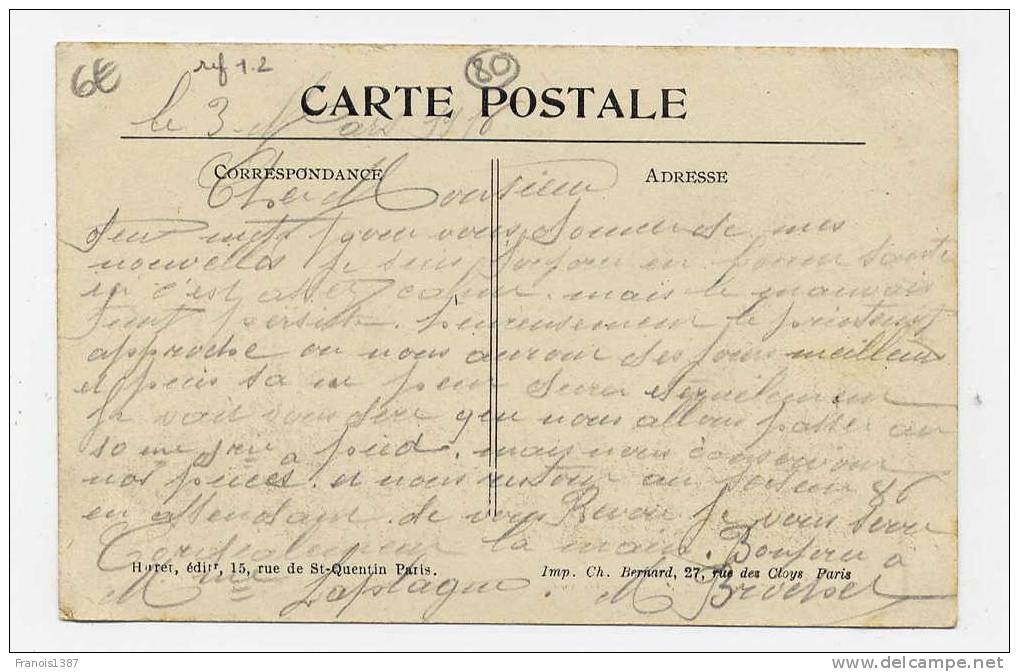 6€
ref 1.2
80
CARTE POSTALE
le 3 Mars
CORRESPONDANCE
ADRESSE
Cher Monsieur
pour vous donner de mes
nouvelles je suis toujour en bonne santé
c'est assez calme. mais le mauvais
persiste. heureusement le printemp
approche ou nous auron des jours meilleur
et puis sa ne peux durer
je vais vous dire que nous allons passer au
à pied. mais nous conservon
nos pièces. et nous reston au secteur 86
en attendant de vous Revoir je vous serre
Cordialement la main. Bonjour à
Huret, éditr, 15, rue de St-Quentin Paris.
Imp. Ch. Bernard, 27, rue des Cloys Paris
Mme Laplagne. M
Franois1387
www.delcampe.net